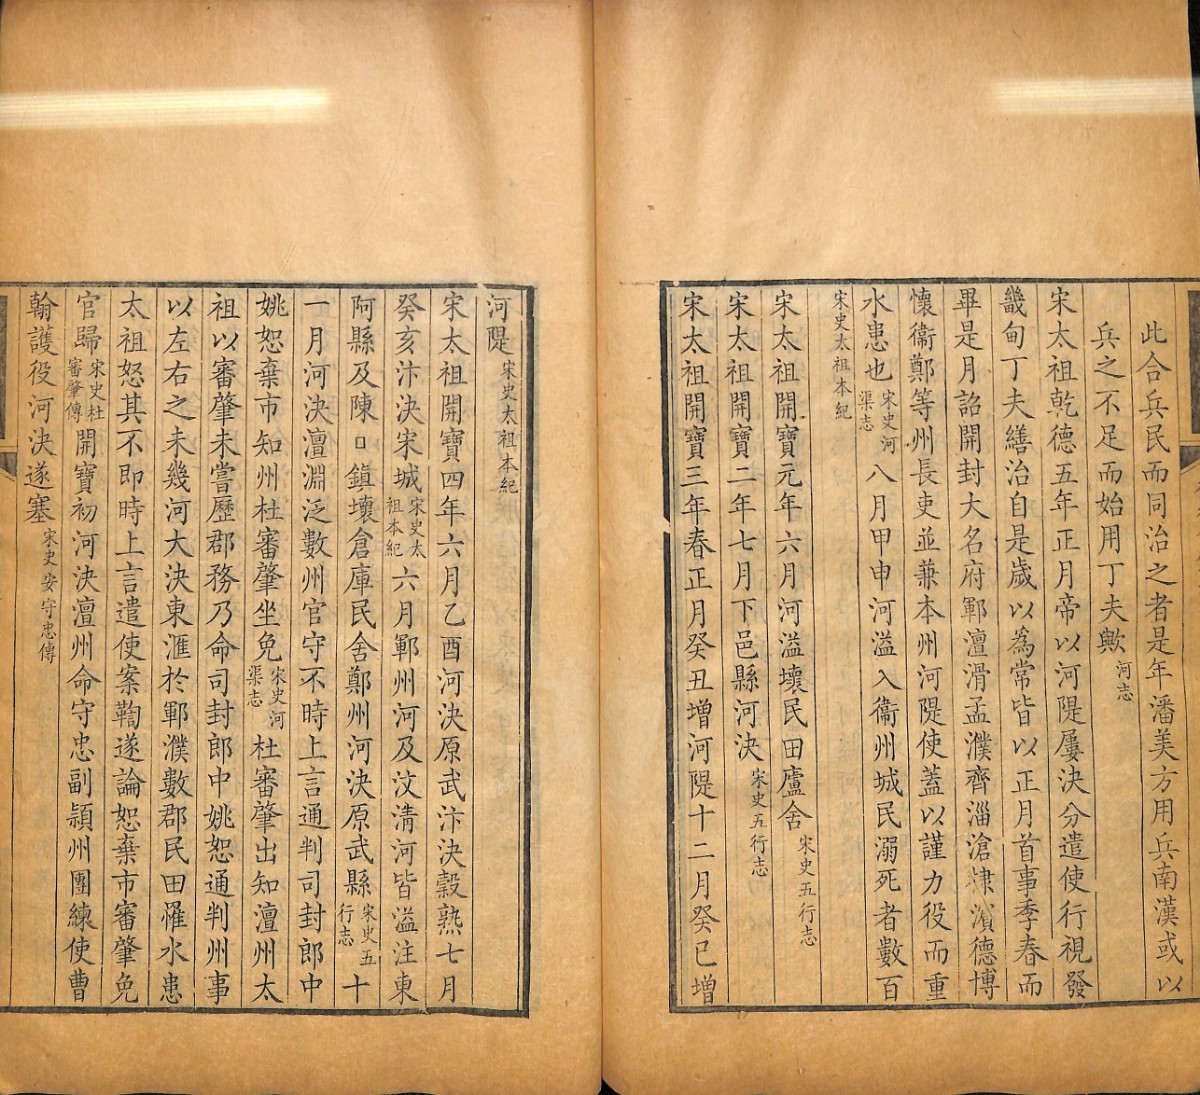 此合兵民而同治之者是年潘美方用兵南漢或以
兵之不足而始用丁夫歟河志
宋太祖乾德五年正月帝以河隄屢決分遣使行視發
畿甸丁夫繕治自是歲以為常皆以正月首事季春而
畢是月詔開封大名府鄆澶滑孟濮齊淄滄棣濵德博
懷衞鄭等州長吏並兼本州河隄使蓋以謹力役而重
水患也宋史河渠志八月甲申河溢入衞州城民溺死者數百
宋史太祖本紀
宋太祖開寶元年六月河溢壞民田廬舍宋史五行志
宋太祖開寶二年七月下邑縣河決宋史五行志
宋太祖開寶三年春正月癸丑增河隄十二月癸巳增
河隄宋史太祖本紀
宋太祖開寶四年六月乙酉河決原武汴決穀熟七月
癸亥汴決宋城宋史太祖本紀六月鄆州河及汶淸河皆溢注東
阿縣及陳□鎮壞倉庫民舍鄭州河決原武縣宋史五行志十
一月河決澶淵泛數州官守不時上言通判司封郎中
姚恕棄市知州杜審肇坐免宋史河渠志杜審肇出知澶州太
祖以審肇未嘗歷郡務乃命司封郎中姚恕通判州事
以左右之未幾河大決東滙於鄆濮數郡民田罹水患
太祖怒其不即時上言遣使案鞫遂論恕棄市審肇免
官歸宋史杜審肇傳開寶初河決澶州命守忠副潁州團練使曹
翰護役河決遂塞宋史安守忠傳